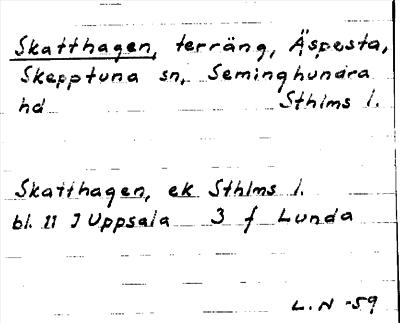 Skatthagen, terräng, Äspesta,
Skepptuna sn, Seminghundra
hd Sthlms l.
Skatthagen, ek Sthlms l.
bl. 11 J Uppsala 3 f Lunda
L.N -59